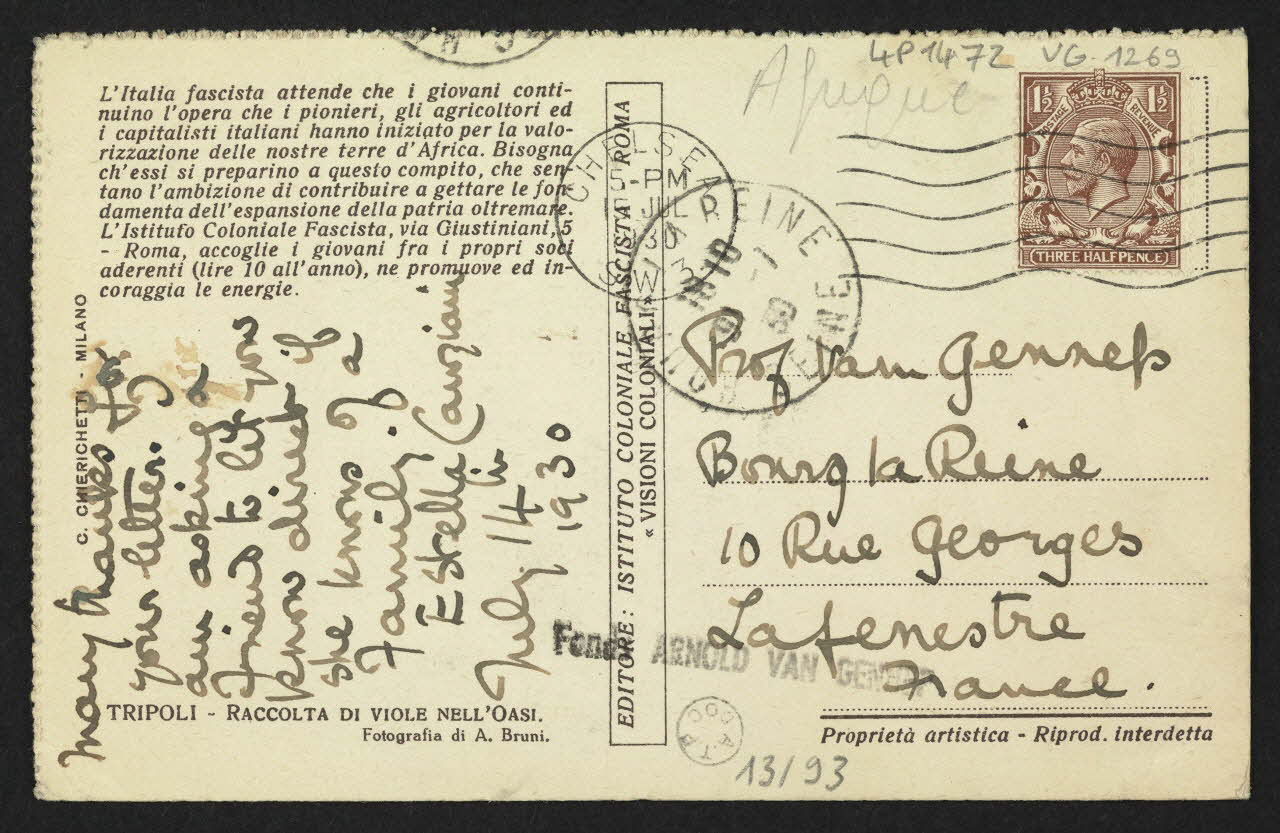 4P1472 VG.1269
Afrique
L'Italia fascista attende che i giovani conti-
nuino l'opera che i pionieri, gli agricoltori ed
i capitalisti italiani hanno iniziato per la valo-
rizzazione delle nostre terre d'Africa. Bisogna
ch'essi si preparino a questo compito, che sen-
tano l'ambizione di contribuire a gettare le fon-
damenta dell'espansione della patria oltremare.
L'Istituto Coloniale Fascista, via Giustiniani, 5
- Roma, accoglie i giovani fra i propri soci
aderenti (lire 10 all'anno), ne promuove ed in-
coraggia le energie.
C. CHIERICHETTI - MILANO
many thanks for
your letter. I
am asking a
friend to let you
know direct if
she knows of a
family.
Estella Canziani
July 14th
1930
TRIPOLI - RACCOLTA DI VIOLE NELL'OASI.
Fotografia di A. Bruni.
EDITORE: ISTITUTO COLONIALE FASCISTA - ROMA
« VISIONI COLONIALI »
CHELSEA
5-PM
JUL
30
S.W.3
REINE
18-10
-7
30
SEINE
1½ 1½
POSTAGE REVENUE
THREE HALFPENCE
Prof van Gennep
Bourg la Reine
10 Rue Georges
Lafenestre
France.
Fonds ARNOLD VAN GENNEP
Proprietà artistica - Riprod. interdetta
A.T.P
13/93